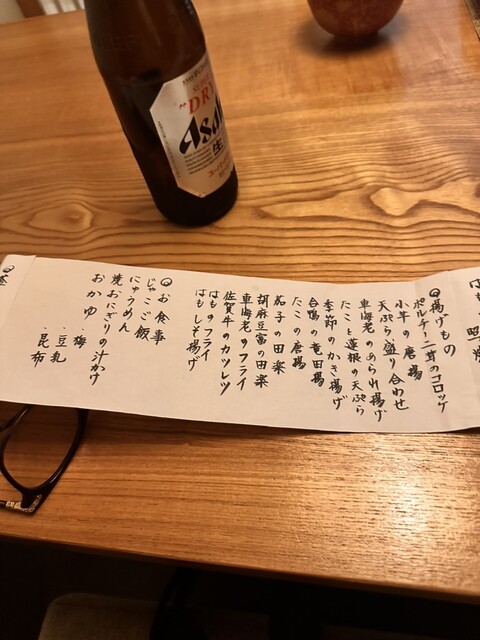 SUPER
"DRY"
Asahi
生
はもの照焼
揚げもの
ポルチーニ茸のコロッケ
小芋の唐揚
天ぷら盛り合わせ
車海老のあられ揚げ
たこと蓮根の天ぷら
季節のかき揚げ
合鴨の竜田揚
たこの唐揚
茄子の田楽
胡麻豆富の田楽
車海老のフライ
佐賀牛のカツレツ
はものフライ
はもしそ揚げ
お食事
じゃこご飯
にゅうめん
焼おにぎりの汁かけ
おかゆ・梅
・豆乳
・昆布